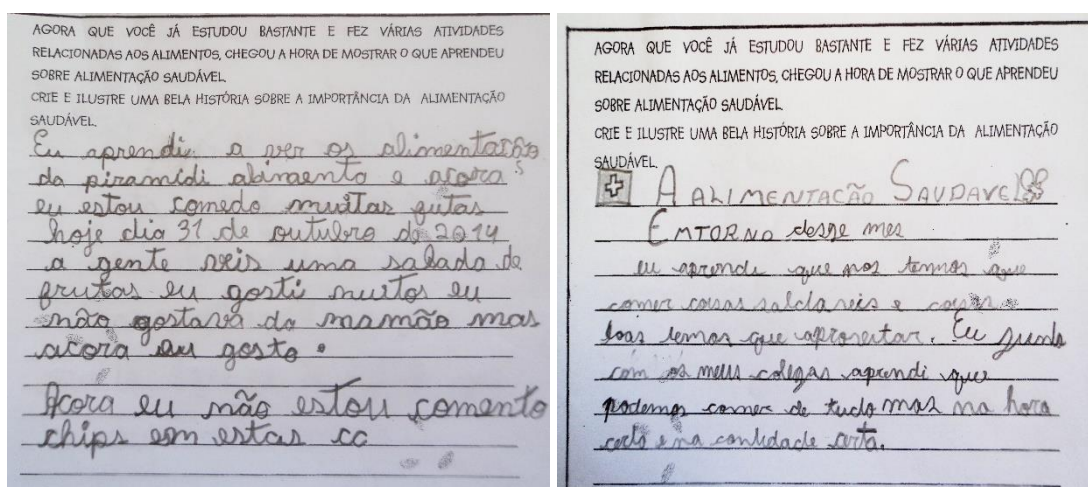 AGORA QUE VOCÊ JÁ ESTUDOU BASTANTE E FEZ VÁRIAS ATIVIDADES
RELACIONADAS AOS ALIMENTOS, CHEGOU A HORA DE MOSTRAR O QUE APRENDEU
SOBRE ALIMENTAÇÃO SAUDÁVEL.
CRIE E ILUSTRE UMA BELA HISTÓRIA SOBRE A IMPORTÂNCIA DA ALIMENTAÇÃO
SAUDÁVEL.
Eu aprendi a ver os
da piramidi abimaento e acora
eu estou comedo muitas gutas
hoje dia 31 de outubro do 2014
a gente veis uma salado de
frutas eu gosti muitos eu
não gostava do mamão mas
acora eu gosto.
Acora eu não estou comento
chips em estas co
AGORA QUE VOCÊ JÁ ESTUDOU BASTANTE E FEZ VÁRIAS ATIVIDADES
RELACIONADAS AOS ALIMENTOS, CHEGOU A HORA DE MOSTRAR O QUE APRENDEU
SOBRE ALIMENTAÇÃO SAUDÁVEL.
CRIE E ILUSTRE UMA BELA HISTÓRIA SOBRE A IMPORTÂNCIA DA ALIMENTAÇÃO
SAUDÁVEL.
A ALIMENTAÇÃO SAUDAVEL
EMTORNO desge mes
eu aprende que nos temmos que
comer coisas saldaveis e coisas
boas temos que aproveitar. Eu junto
com os meus colegas aprendi que
podemos comer de tudo mas na hora
certa e na contidade certa.